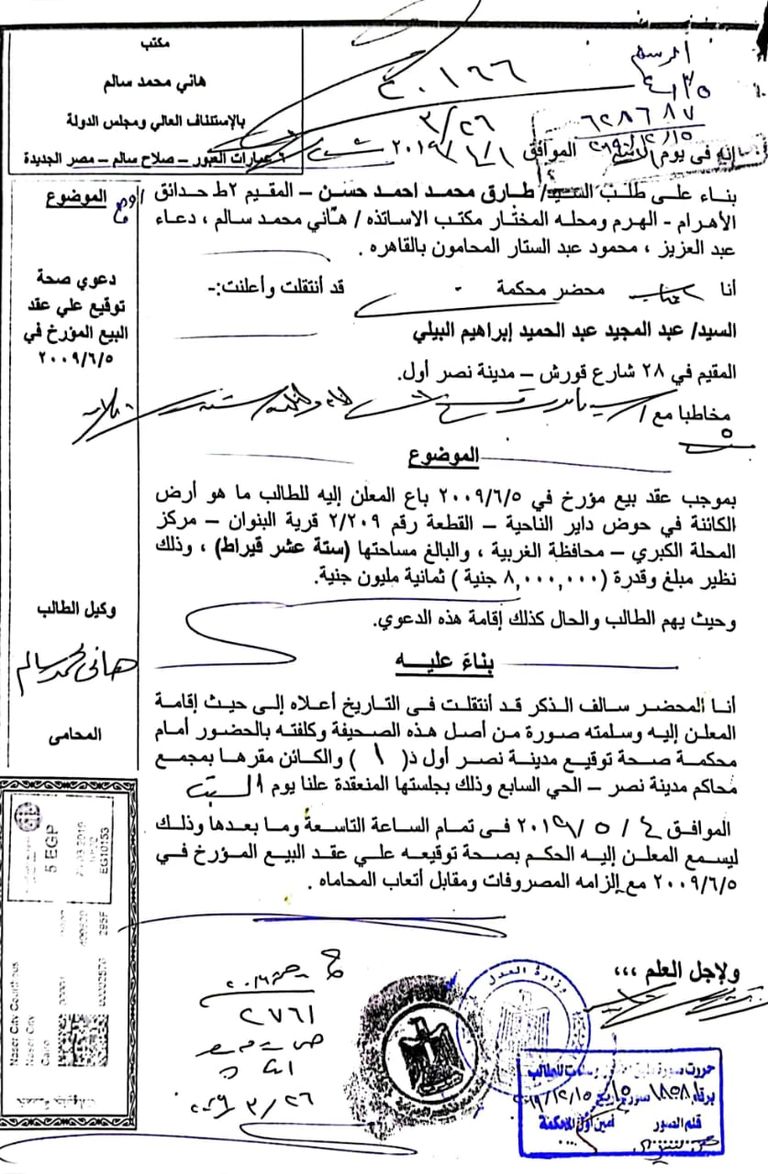 مكتب
هاني محمد سالم
بالإستئناف العالي ومجلس الدولة
٦ عمارات العبور – صلاح سالم – مصر الجديدة
الرسم
٢٠١٦٦
٣/٢٦
إنه في يوم الموافق ٢٠١٩/
بناء على طلب السيد/ طارق محمد احمد حسن – المقيم ٢ط حدائق
الأهرام – الهرم ومحله المختار مكتب الاساتذه / هاني محمد سالم ، دعاء
عبد العزيز ، محمود عبد الستار المحامون بالقاهره .
أنا محضر محكمة قد أنتقلت وأعلنت:-
السيد/ عبد المجيد عبد الحميد إبراهيم البيلي
المقيم في ٢٨ شارع قورش – مدينة نصر أول.
مخاطبا مع
الموضوع
بموجب عقد بيع مؤرخ في ٢٠٠٩/٦/٥ باع المعلن إليه للطالب ما هو أرض
الكائنة في حوض داير الناحية – القطعة رقم ٢/٢٠٩ قرية البنوان – مركز
المحلة الكبري – محافظة الغربية ، والبالغ مساحتها (ستة عشر قيراط) ، وذلك
نظير مبلغ وقدرة (٨,٠٠٠,٠٠٠ جنية ) ثمانية مليون جنية.
وحيث يهم الطالب والحال كذلك إقامة هذه الدعوي.
بناءً عليه
أنا المحضر سالف الذكر قد أنتقلت في التاريخ أعلاه إلى حيث إقامة
المعلن إليه وسلمته صورة من أصل هذه الصحيفة وكلفته بالحضور أمام
محكمة صحة توقيع مدينة نصر أول ذ( ١ ) والكائن مقرها بمجمع
محاكم مدينة نصر – الحي السابع وذلك بجلستها المنعقدة علنا يوم السبت
الموافق ٤ / ٥ / ٢٠١٩ فى تمام الساعة التاسعة وما بعدها وذلك
ليسمع المعلن إليه الحكم بصحة توقيعه علي عقد البيع المؤرخ في
٢٠٠٩/٦/٥ مع إلزامه المصروفات ومقابل أتعاب المحاماه .
ولاجل العلم ،،،
الموضوع
دعوي صحة
توقيع علي عقد
البيع المؤرخ في
٢٠٠٩/٦/٥
وكيل الطالب
هانى محمد سالم
المحامى
5 EGP
EG10153
Nasr City
Cairo
٢٧٦١
٢٠١٩/٣/٢٦
وزارة العدل
قلم الصور